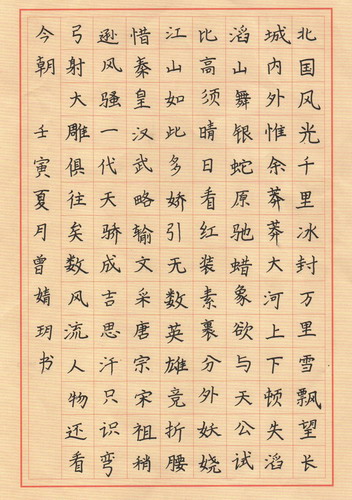 北国风光千里冰封万里雪飘望长
城内外惟余莽莽大河上下顿失滔
滔山舞银蛇原驰蜡象欲与天公试
比高须晴日看红装素裹分外妖娆
江山如此多娇引无数英雄竞折腰
惜秦皇汉武略输文采唐宗宋祖稍
逊风骚一代天骄成吉思汗只识弯
弓射大雕俱往矣数风流人物还看
今朝 壬寅夏月曾婧玥书